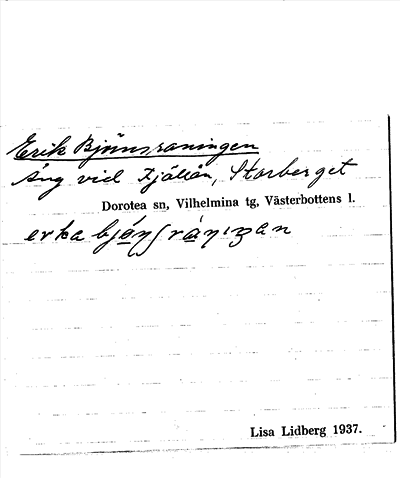 Erik Björnsraningen
Äng vid Fjällån, Storberget
Dorotea sn, Vilhelmina tg, Västerbottens l.
erka
Lisa Lidberg 1937.